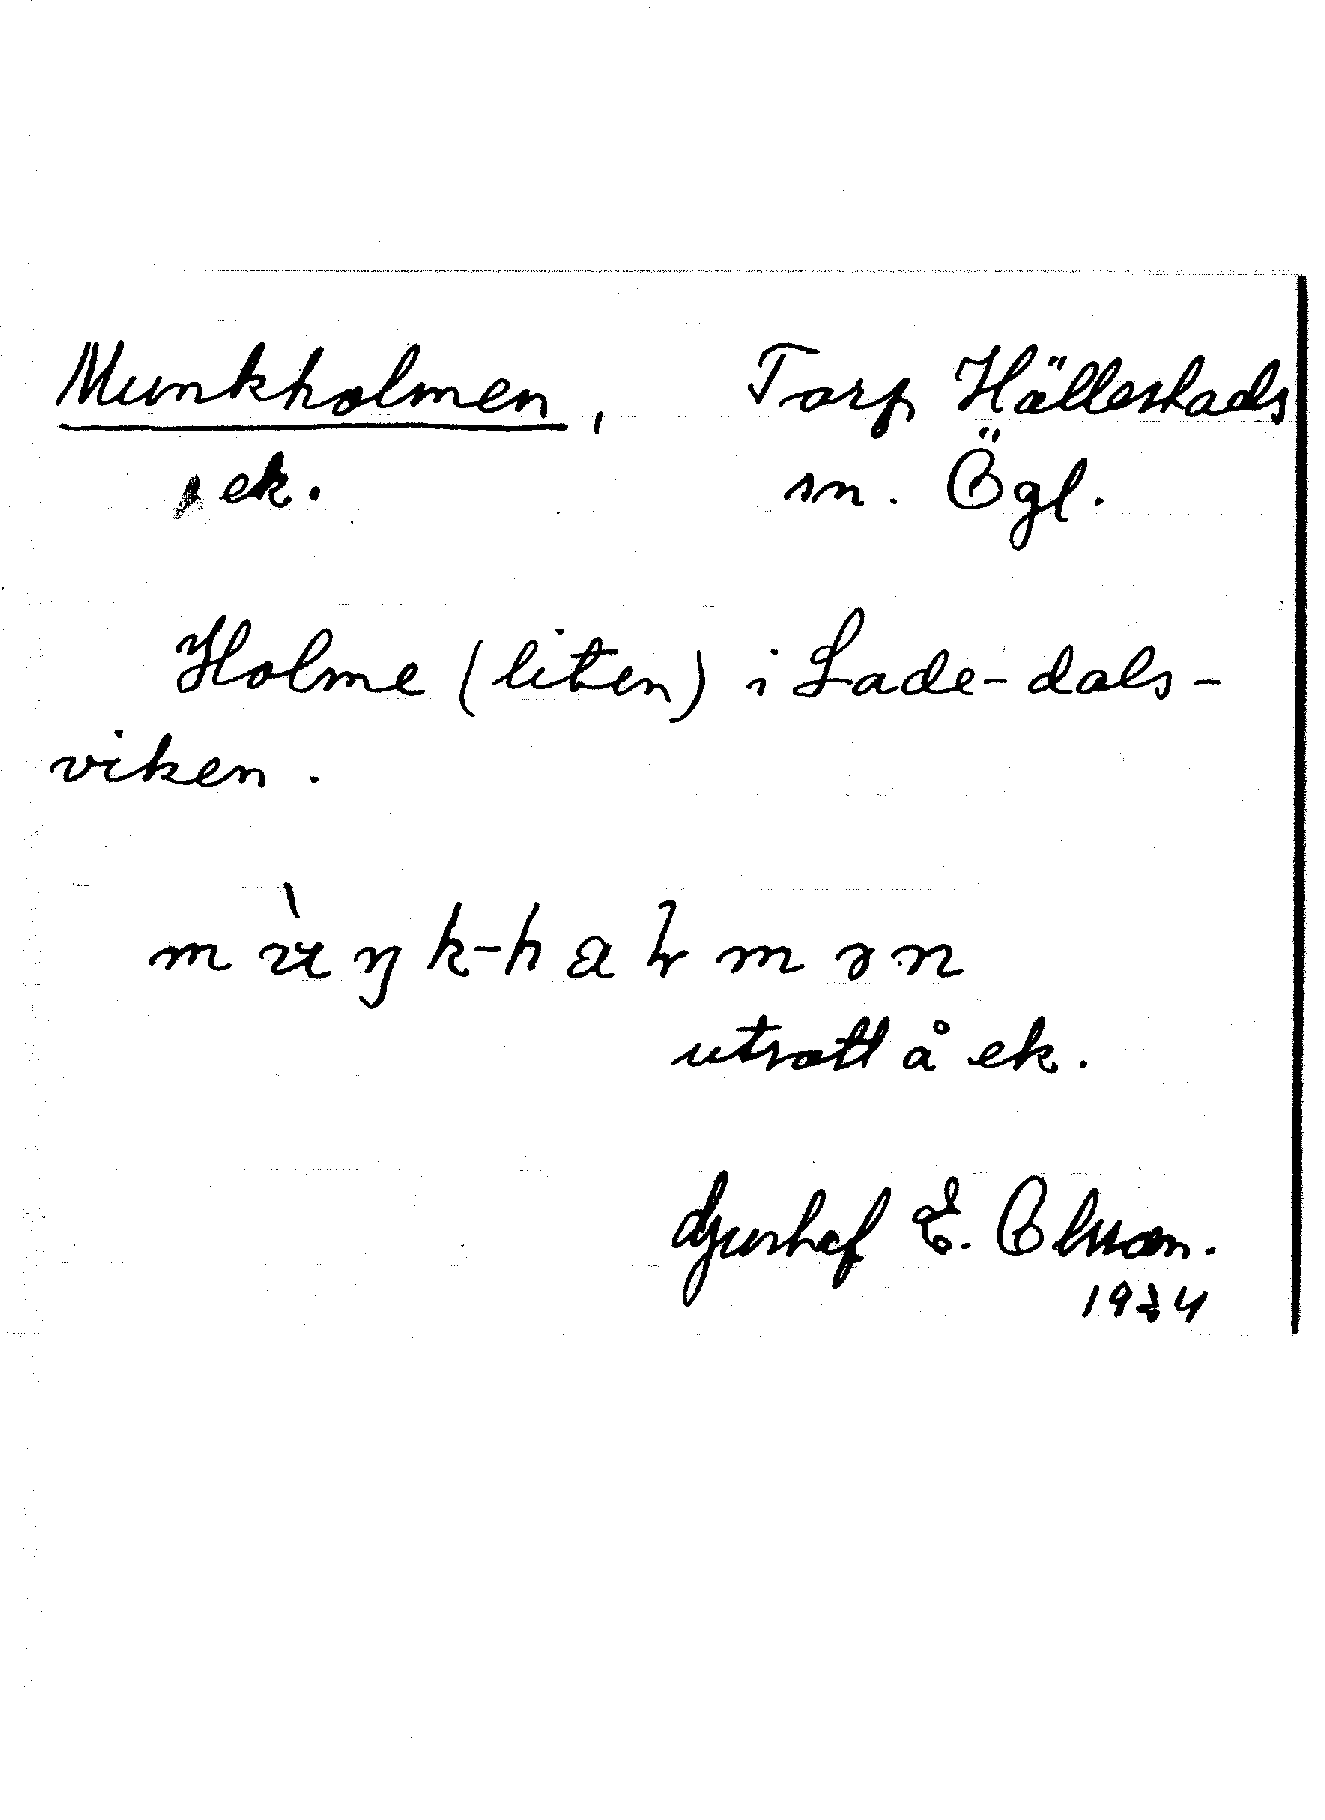 Munkholmen, Torp Hällestads
ek. sn. Ögl.
Holme (liten) i Lade-dals-
viken.
utsatt å ek.
Djurhof E. Olsson.
1934